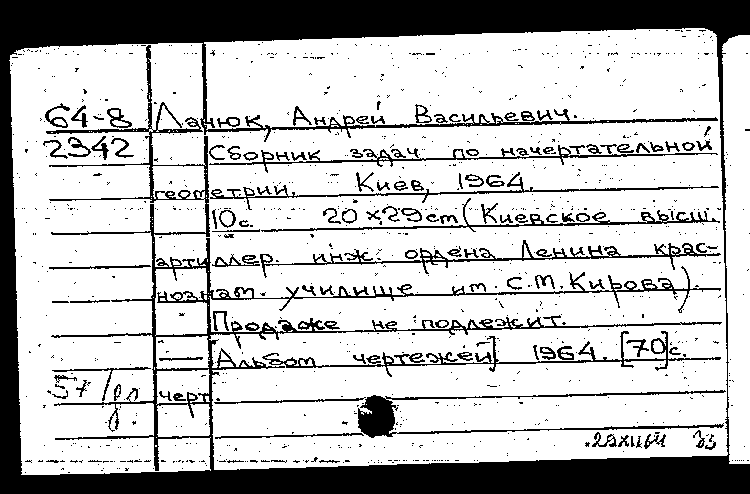 64-8 Ланюк, Андрей Васильевич.
2342 Сборник задач по начертательной
геометрии. Киев, 1964.
10с. 20×29cm (Киевское высш.
артиллер. инж. ордена Ленина крас-
нознам. училище им. С.М. Кирова).
Продаже не подлежит.
— [Альбом чертежей] 1964. [70]с.
черт.
57/